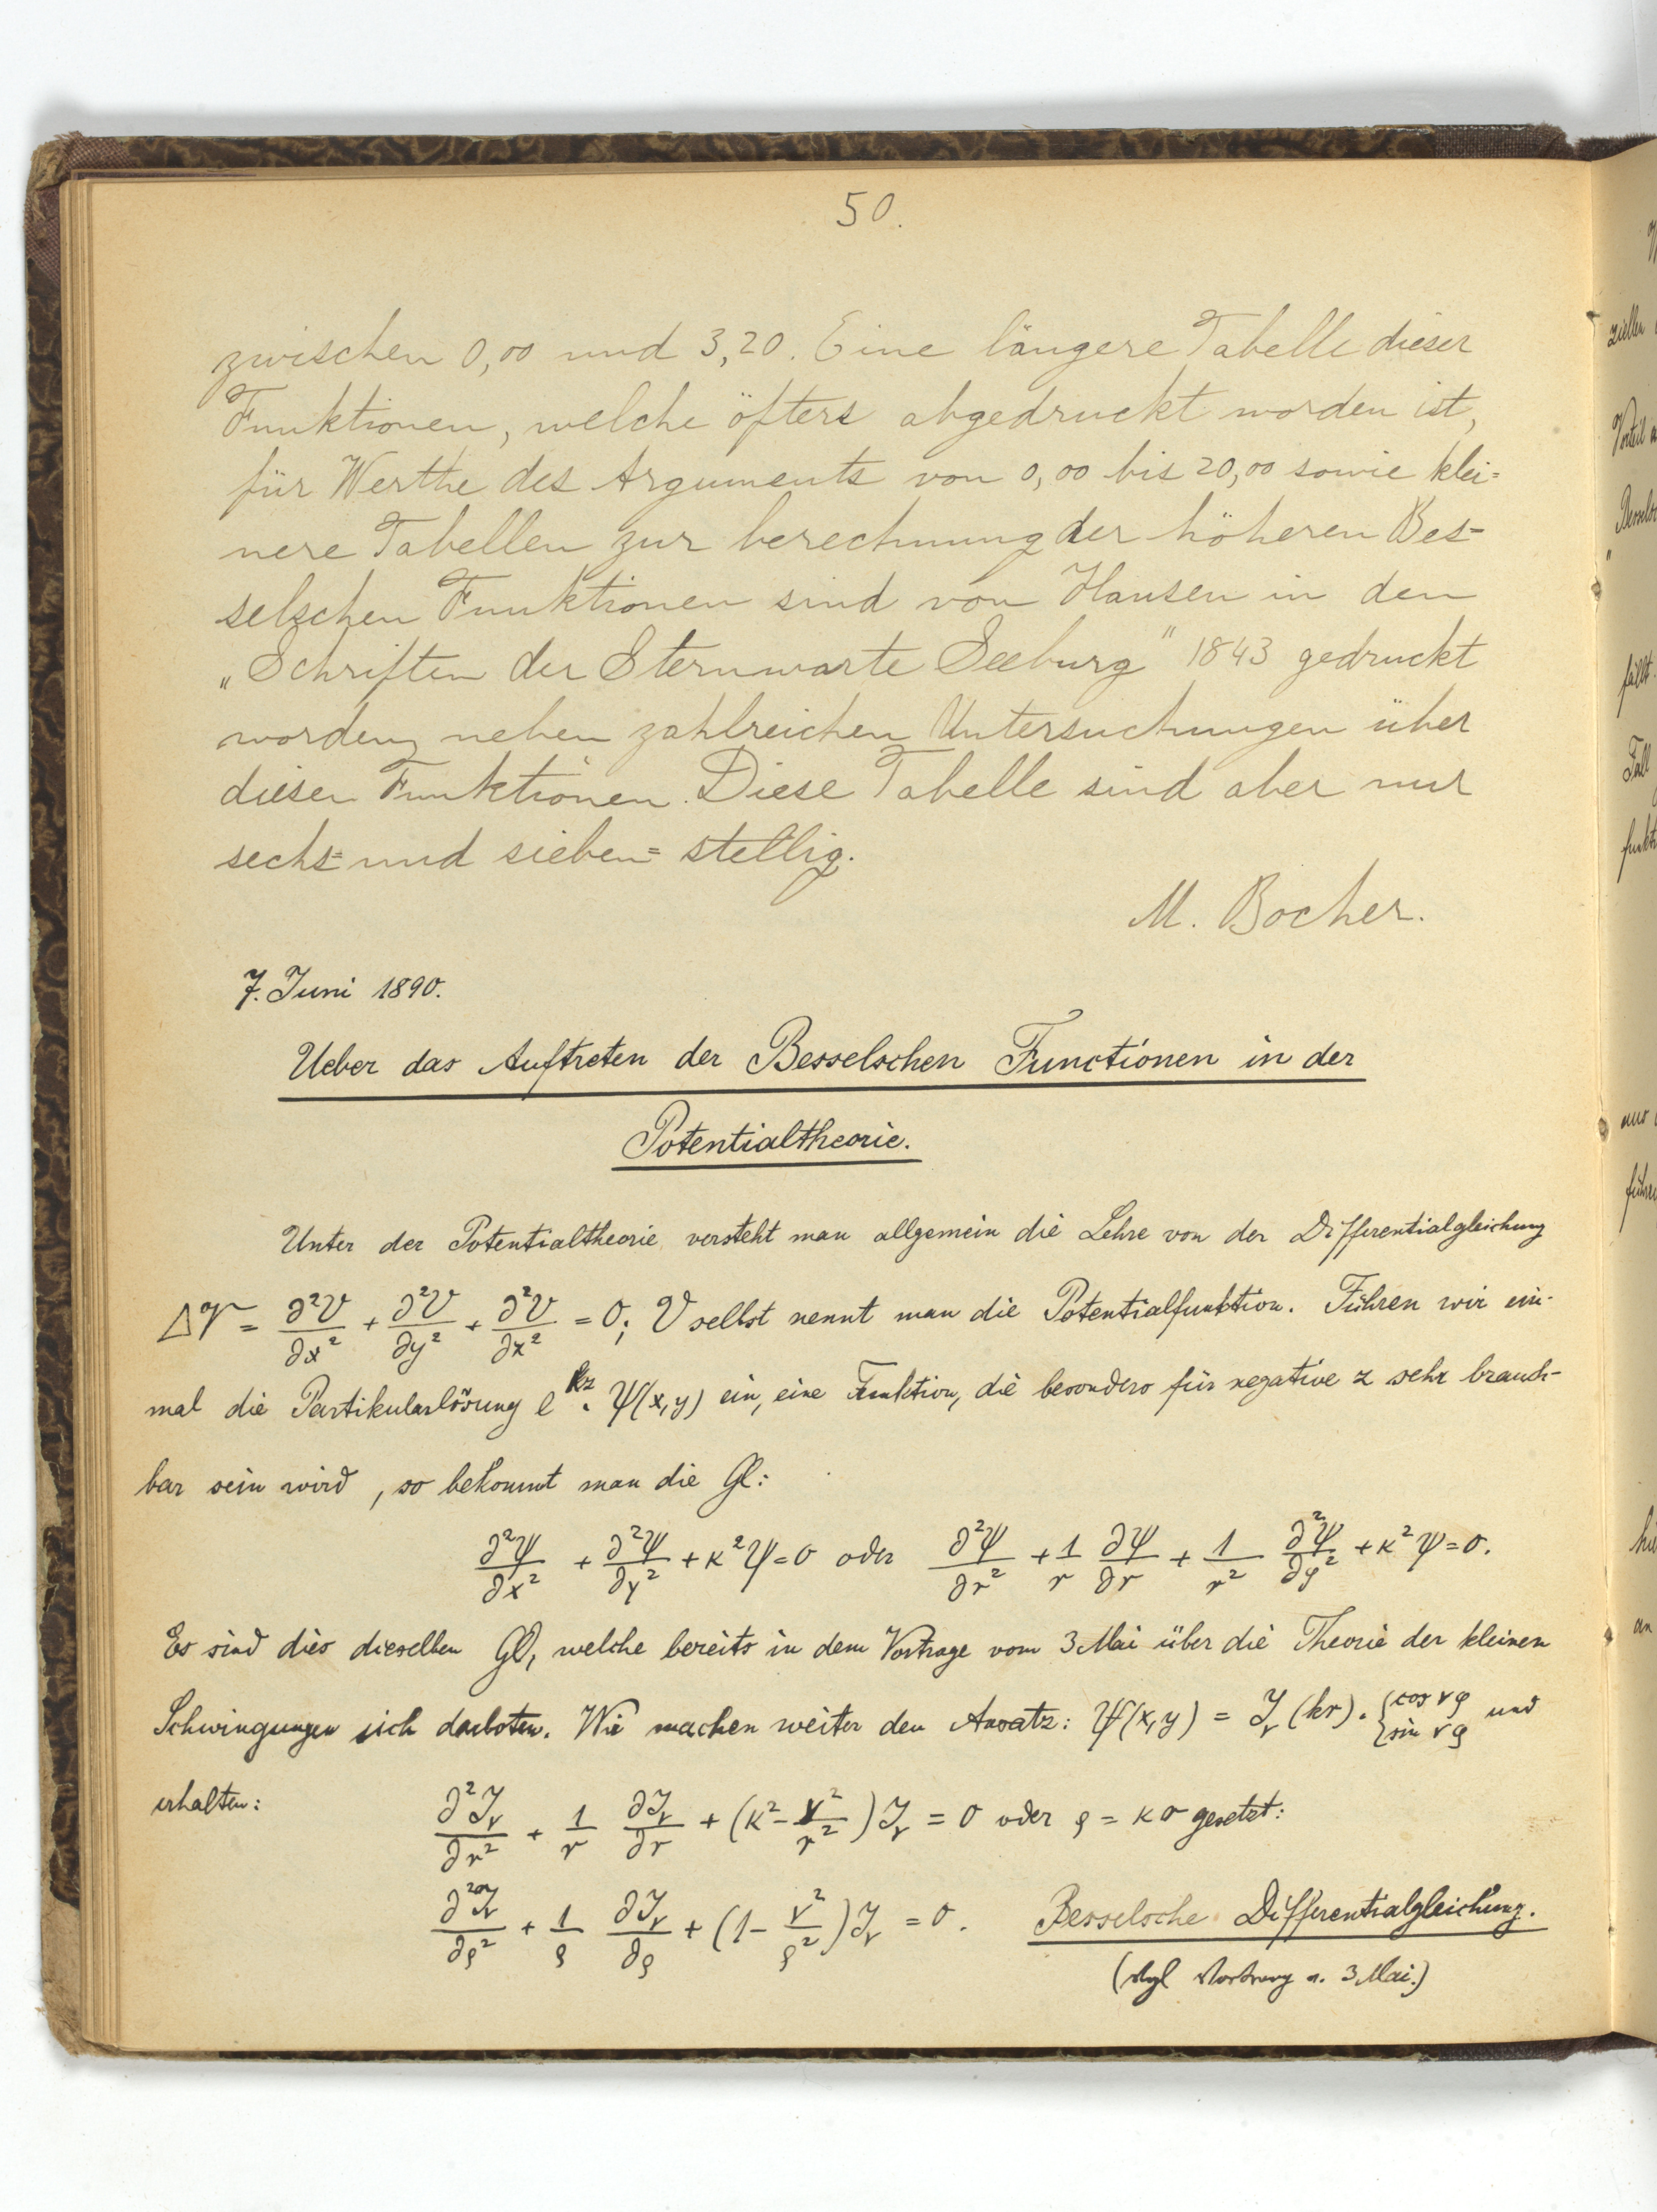 50.
zwischen 0,00 und 3,20. Eine längere Tabelle dieser
Funktionen, welche öfters abgedruckt worden ist,
für Werthe des Arguments von 0,00 bis 20,00 sowie klei=
nere Tabellen zur berechnung der höheren Bes=
selschen Funktionen sind von Hansen in den
„Schriften der Sternwarte Seeburg" 1843 gedruckt
worden, neben zahlreichen Untersuchungen über
diesen Funktionen. Diese Tabelle sind aber nur
sechs= und sieben= stellig.
M. Bocher.
7. Juni 1890.
Ueber das Auftreten der Besselschen Functionen in der
Potentialtheorie.
Unter der Potentialtheorie versteht man allgemein die Lehre von der Differentialgleichung
ΔV = ∂²V/∂x² + ∂²V/∂y² + ∂²V/∂z² = 0; V selbst nennt man die Potentialfunktion. Führen wir ein-
mal die Partikularlösung e^{kz} · ψ(x,y) ein, eine Funktion, die besonders für negative z sehr brauch-
bar sein wird, so bekommt man die Gl:
∂²ψ/∂x² + ∂²ψ/∂y² + k²ψ = 0 oder ∂²ψ/∂r² + 1/r ∂ψ/∂r + 1/r² ∂²ψ/∂φ² + k²ψ = 0.
Es sind dies dieselben Gl, welche bereits in dem Vortrage vom 3 Mai über die Theorie der kleinen
Schwingungen sich darboten. Wir machen weiter den Ansatz: ψ(x,y) = J_ν(kr) · {cos νφ sin νφ und
erhalten: ∂²J_ν/∂r² + 1/r ∂J_ν/∂r + (k² - ν²/r²) J_ν = 0 oder ρ = kr gesetzt:
∂²J_ν/∂ρ² + 1/ρ ∂J_ν/∂ρ + (1 - ν²/ρ²) J_ν = 0. Besselsche Differentialgleichung.
(Vgl Vortrag v. 3 Mai.)
zieller
Vorteil
Besselsc
fällt
Fall
funkt
aus
führe
an